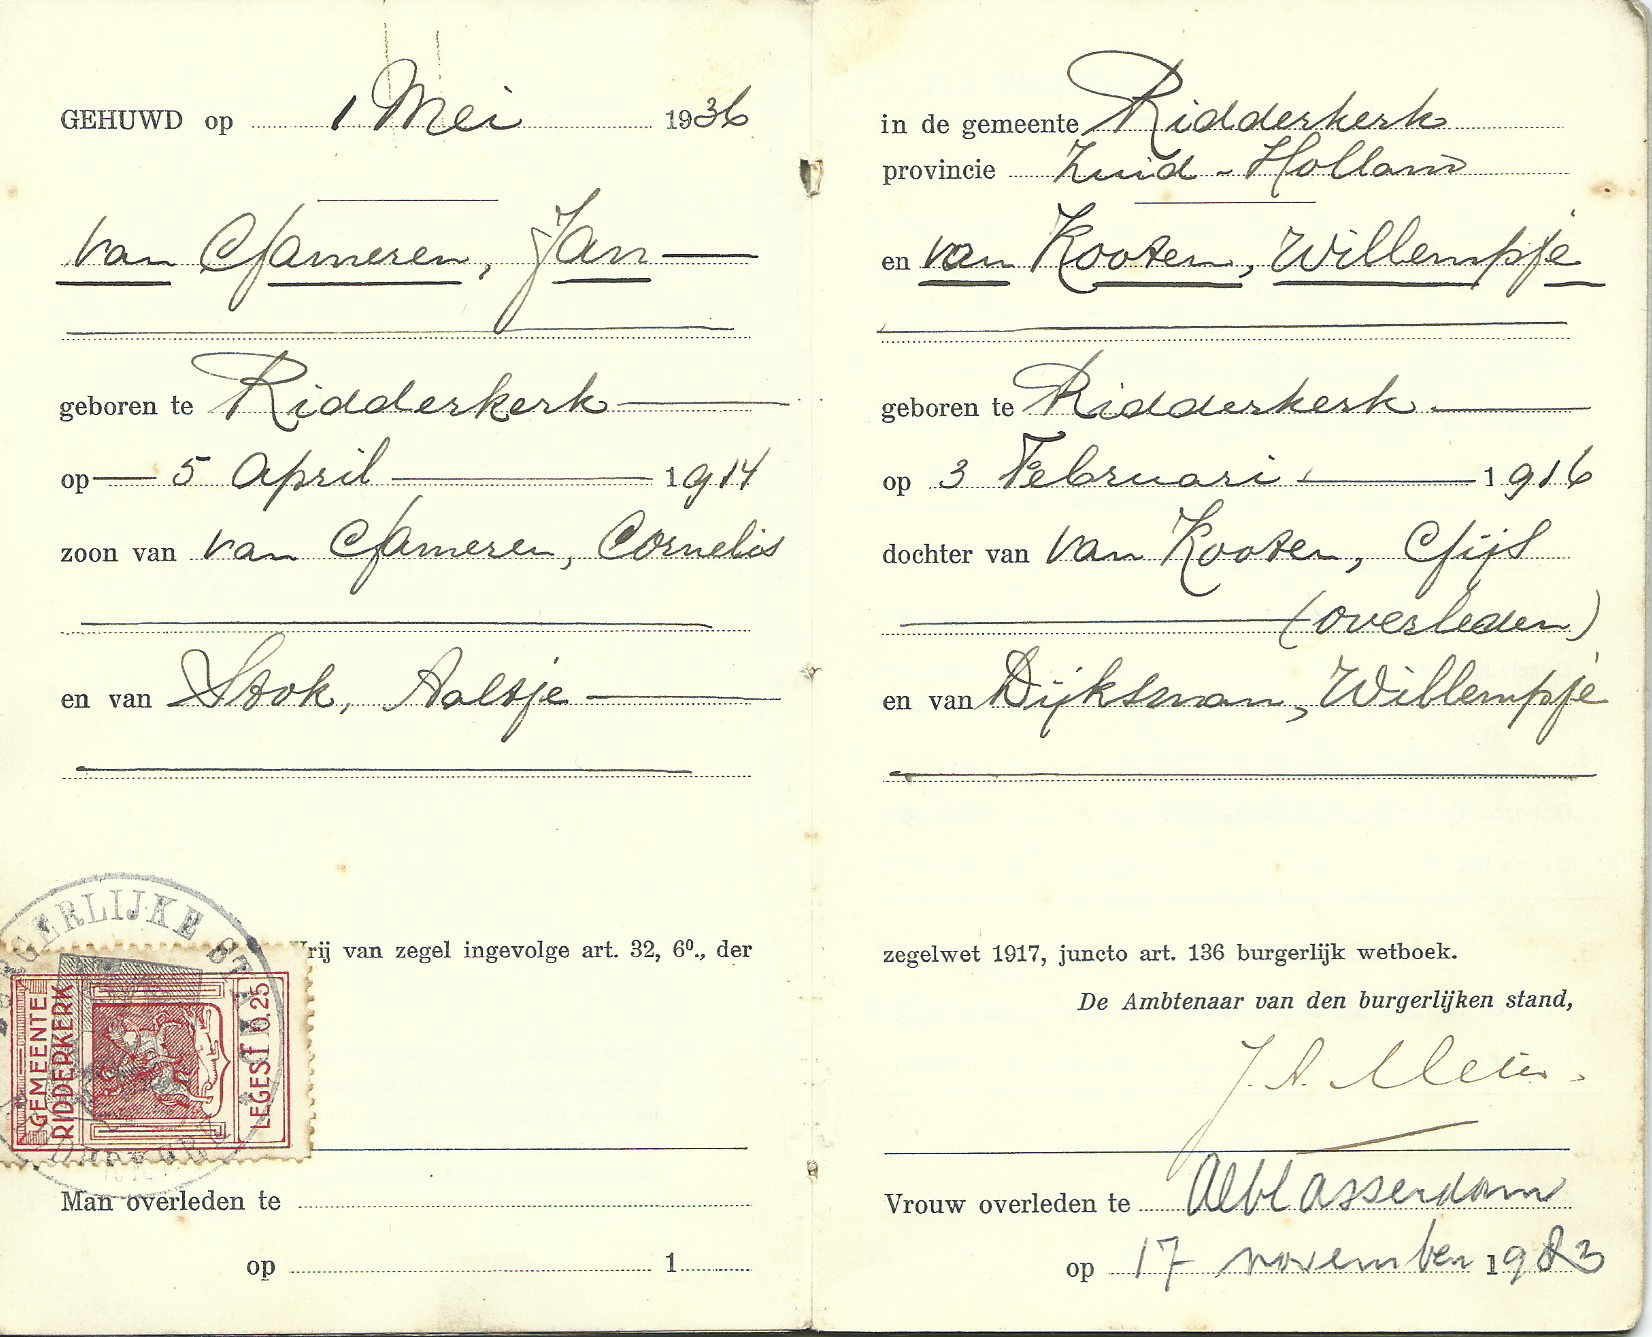 GEHUWD op 1 Mei 1936
van Gameren, Jan
geboren te Ridderkerk
op 5 April 1914
zoon van van Gameren, Cornelis
en van Stok, Aaltje
Vrij van zegel ingevolge art. 32, 6⁰., der
BURGERLIJKE STAND
GEMEENTE
RIDDERKERK
LEGES f 0,25
Man overleden te
op 1
in de gemeente Ridderkerk
provincie Zuid-Holland
en van Kooten, Willempje
geboren te Ridderkerk
op 3 Februari 1916
dochter van van Kooten, Gijs
(overleden)
en van Dijksman, Willempje
zegelwet 1917, juncto art. 136 burgerlijk wetboek.
De Ambtenaar van den burgerlijken stand,
J. A.
Vrouw overleden te Alblasserdam
op 17 november 1983